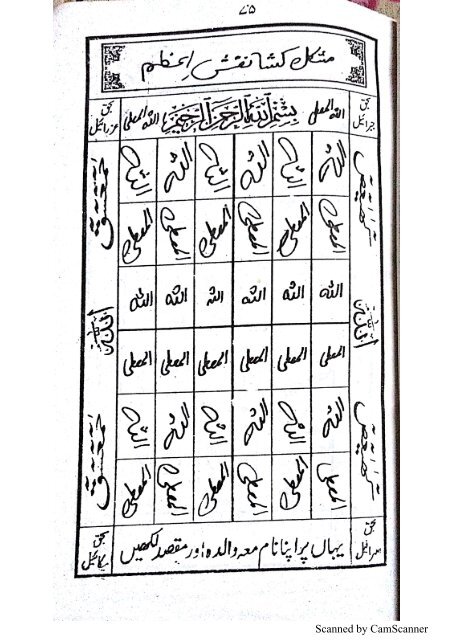 ۷۵
مشکل کشا نقش اعظم
بحق جبرائیل اللہ المعطی بسم اللہ الرحمن الرحیم اللہ المعطی بحق عزرائیل
کھیعص اللہ اللہ اللہ اللہ اللہ اللہ حمعسق
المعطی المعطی المعطی المعطی المعطی المعطی
اللہ اللہ اللہ اللہ اللہ اللہ
المعطی المعطی المعطی المعطی المعطی المعطی
کھیعص اللہ اللہ اللہ اللہ اللہ اللہ حمعسق
المعطی المعطی المعطی المعطی المعطی المعطی
بحق اسرافیل یہاں پر اپنا نام معہ والدہ اور مقصد لکھیں بحق میکائیل
Scanned by CamScanner